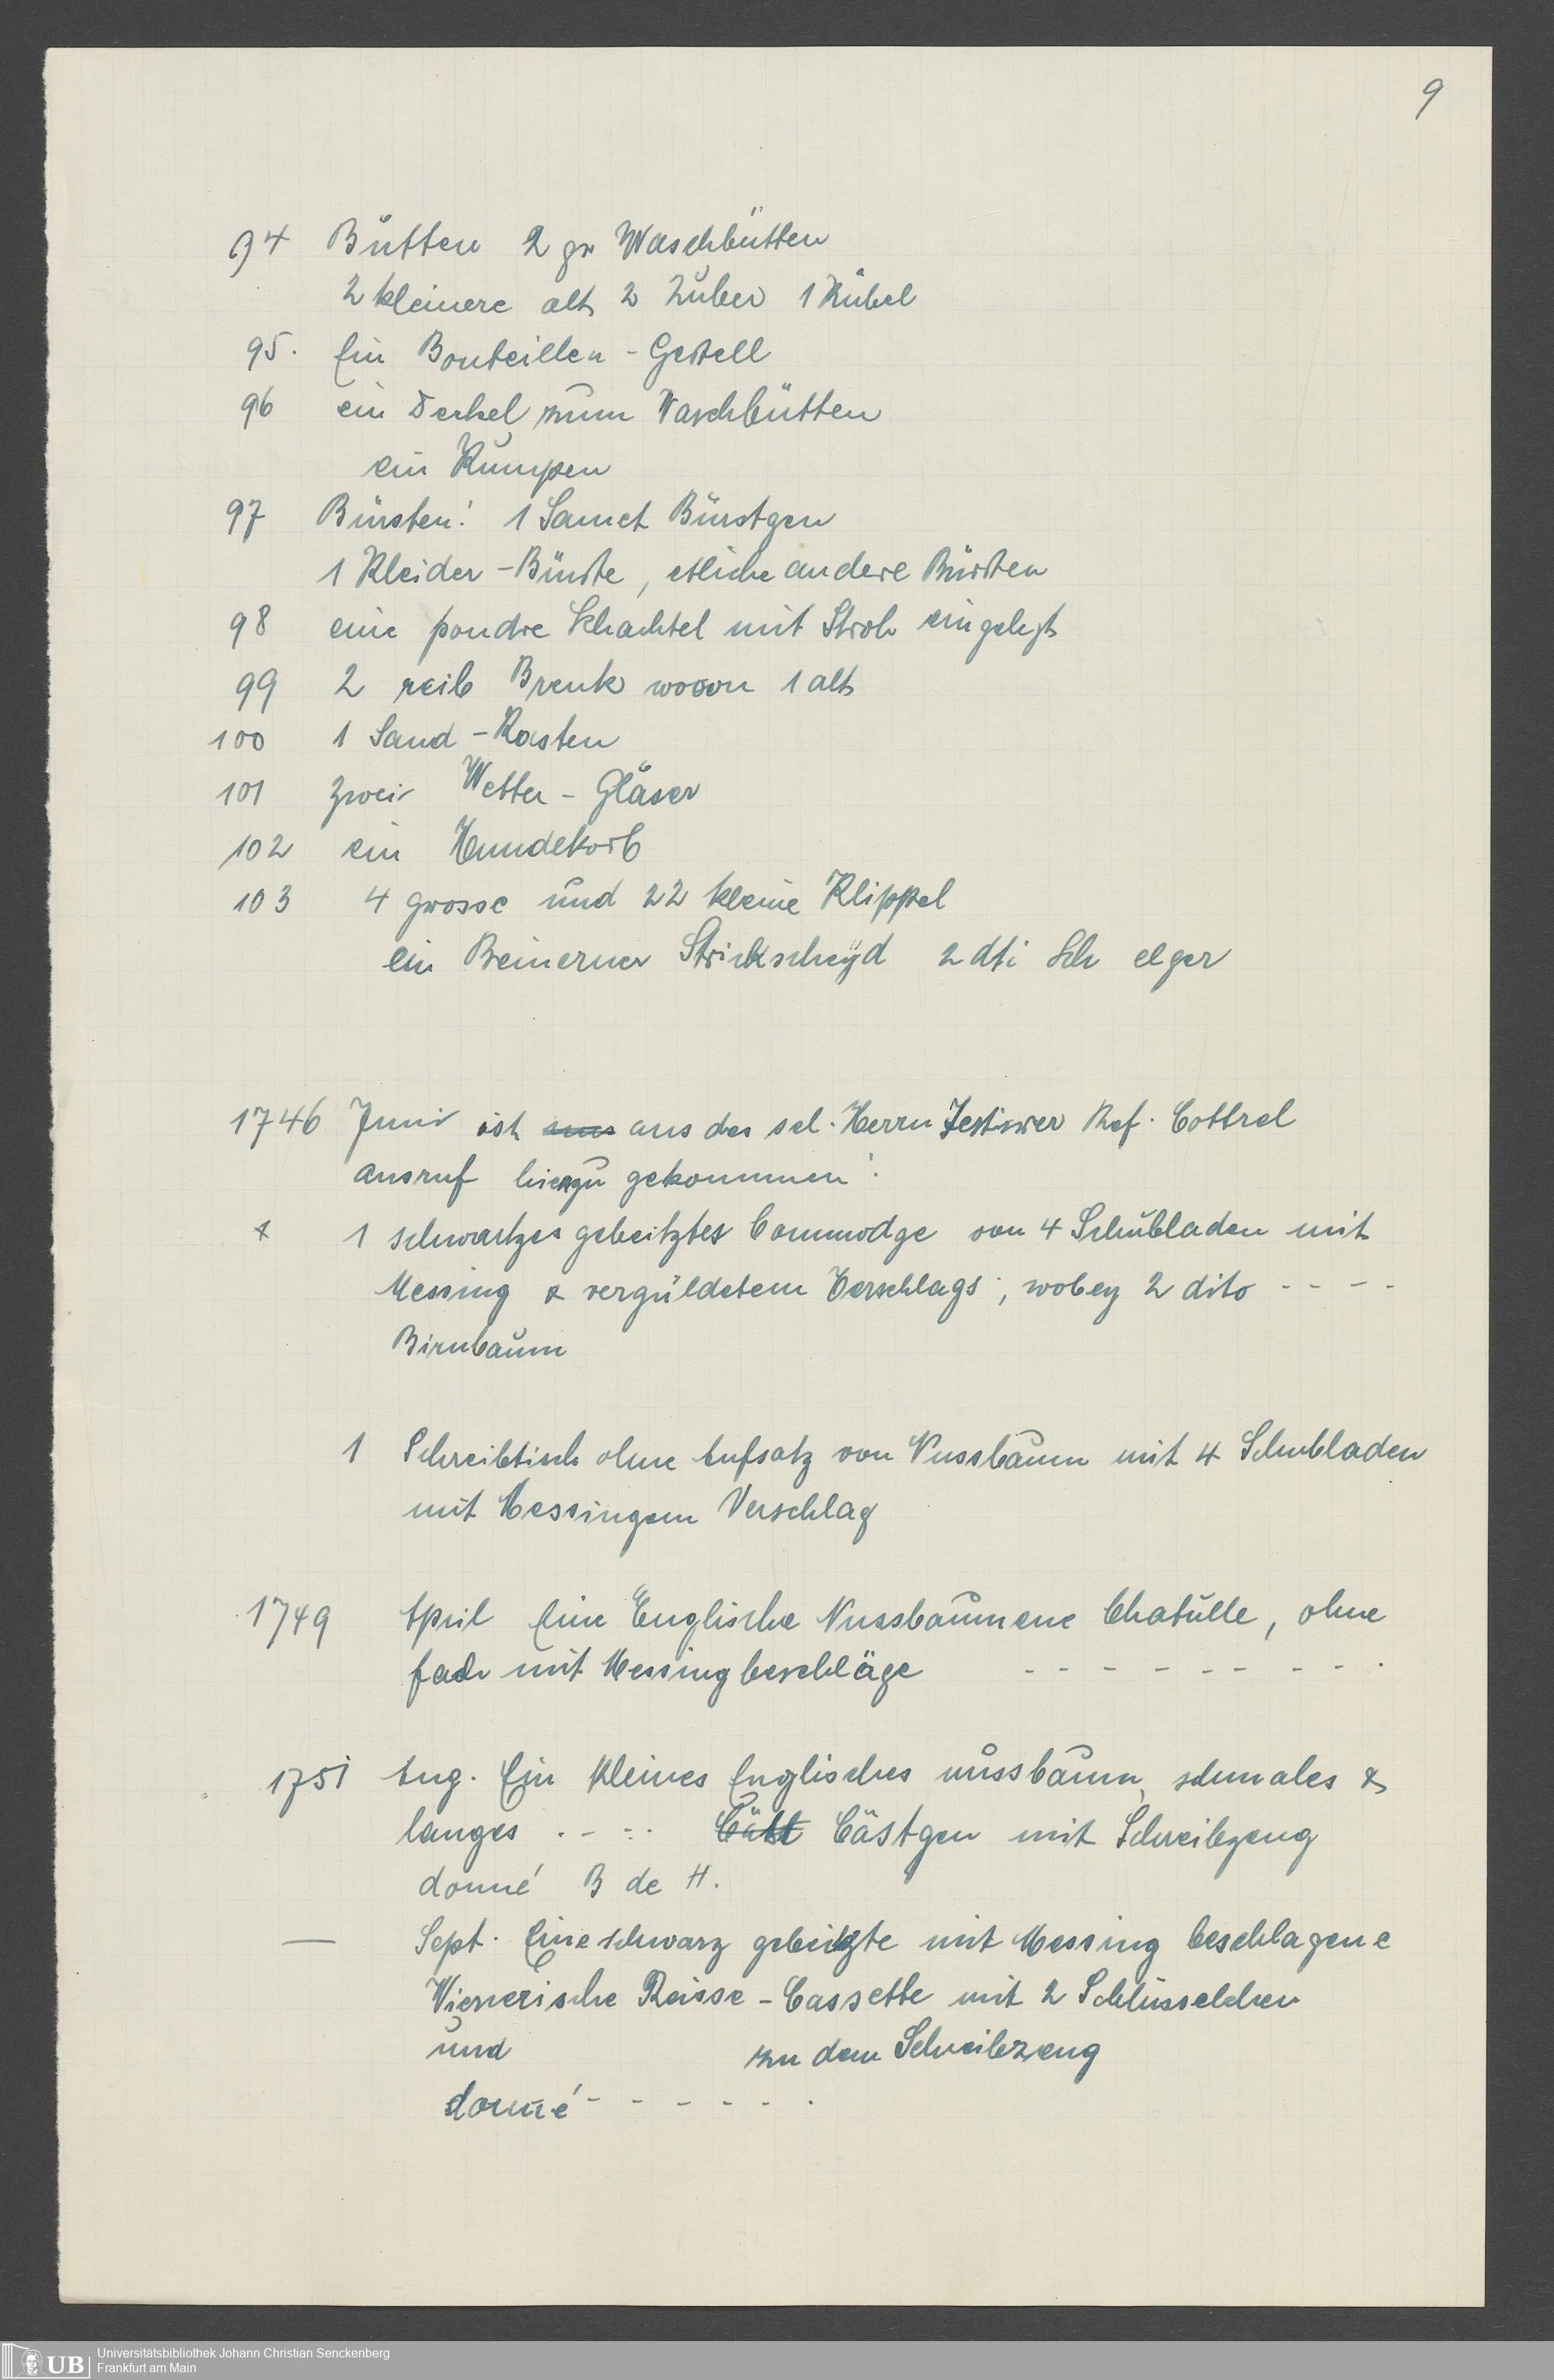 9
94 Bütten 2 gr Waschbütten
2 kleinere alt, 2 Zuber 1 Kübel
95. Ein Bouteillen-Gestell
96 ein Deckel zum Waschbütten
ein Kumpen
97 Bürsten: 1 Samet Bürstgen
1 Kleider-Bürste, etliche andere Bürsten
98 eine poudre Schachtel mit Stroh eingelegt
99 2 reib Brenk wovon 1 alt
100 1 Sand-Kasten
101 zwei Wetter-Gläser
102 ein Hundekorb
103 4 grosse und 22 kleine Klippel
ein Beinerner Strickscheyd 2 dti Sch elger
1746 Juni ist aus des sel. Herrn Ref. Cottrel
ausruf hierzu gekommen:
x 1 schwartzes gebeitztes Commodge von 4 Schubladen mit
Messing & vergüldetem Verschlags, wobey 2 dito - - - -
Birnbaum
1 Schreibtisch ohne Aufsatz von Nussbaum mit 4 Schubladen
mit Messingem Verschlag
1749 April Eine Englische Nussbaumene Chatulle, ohne
fach mit Messingbeschläge - - - - - - - - -
1751 Aug. Ein kleines Englisches nussbaum, schmales &
langes . - - . Cästgen mit Schreibzeug
donné B de H.
— Sept. Eine schwarz gebeitzte mit Messing beschlagene
Wienerische Reisse-Cassette mit 2 Schlüsselchen
und zu dem Schreibzeug
donné - - - - - -
UB Universitätsbibliothek Johann Christian Senckenberg
Frankfurt am Main